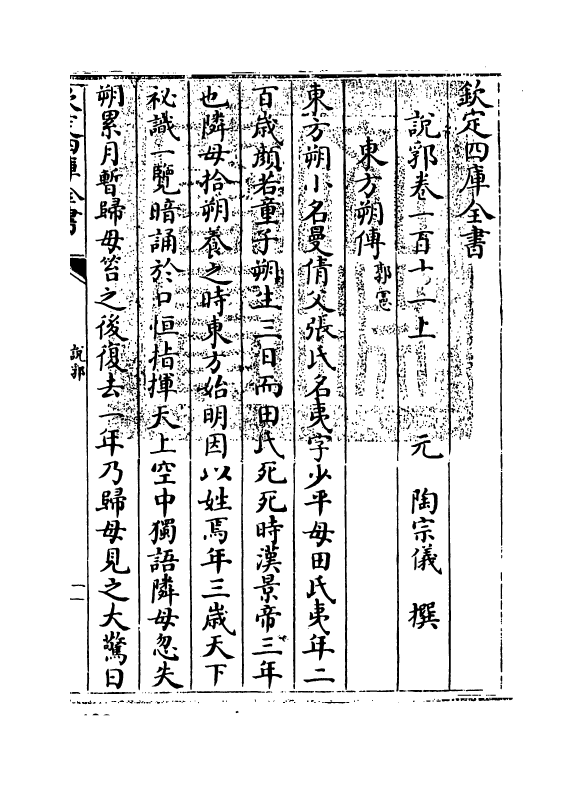 欽定四庫全書
說郛卷一百十一上　元　陶宗儀　撰
東方朔傳 郭憲
東方朔小名曼倩父張氏名夷字少平母田氏夷年二
百歳顔若童子朔生三日而田氏死死時漢景帝三年
也隣母拾朔養之時東方始明因以姓焉年三歳天下
祕識一覽暗誦於口恒指揮天上空中獨語隣母忽失
朔累月暫歸母笞之後復去一年乃歸母見之大驚曰
欽定四庫全書
說郛
一